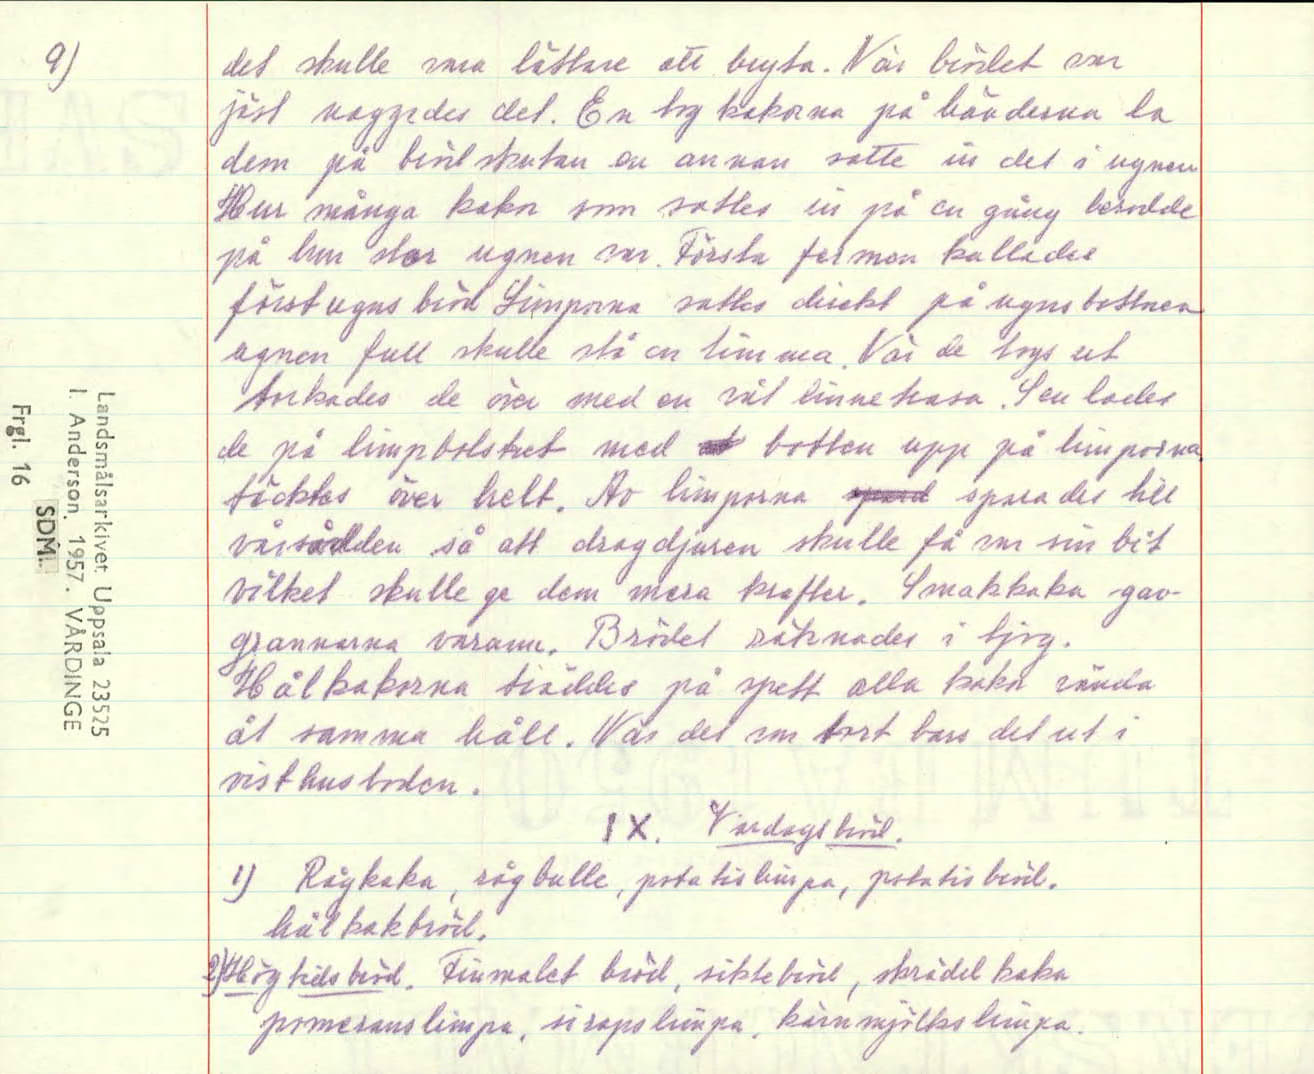 9)
det skulle vara lättare att bryta. När brödet var
jäst naggades det. En tog kakorna på händerna la
dem på brödskutan en annan satte in det i ugnen
Hur många kakor som sattes in på en gång berodde
på hur stor ugnen var. Första fermen kallades
förstugnsbröd Limporna sattes direkt på ugnsbottnen
ugnen full skulle stå en timma. När de togs ut
torkades de över med en våt linnetrasa. Sen lades
de på limpbolstret med botten upp på limporna
täcktes över helt. Av limporna sparades till
vårsådden så att dragdjuren skulle få var sin bit
vilket skulle ge dem mera krafter. Smakkaka gav
grannarna varann. Brödet räknades i tjog.
Hålkakorna träddes på spett alla kakor vända
åt samma håll. När det var tort bars det ut i
visthusboden.
IX. Vardagsbröd.
1) Rågkaka, rågbulle, potatislimpa, potatisbröd.
hålkakbröd.
2) Högtidsbröd. Finmalet bröd, siktebröd, skrädelkaka
pomeranslimpa, sirapslimpa, kärnmjölkslimpa.
Landsmålsarkivet, Uppsala 23525
I. Anderson. 1957. VÅRDINGE
SDM.
Frgl. 16